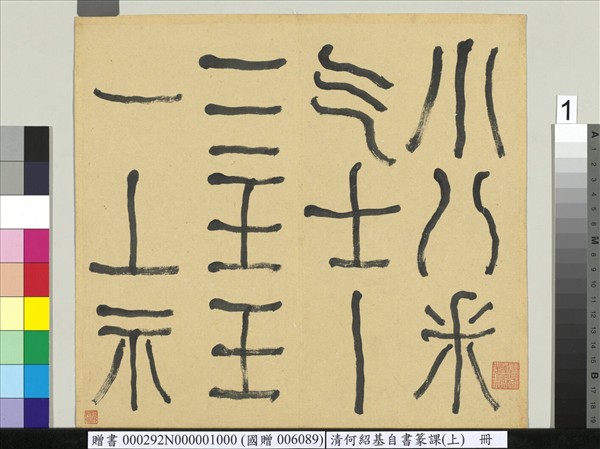 一上示
三王玉
气士丨
小八釆
1
A
M
B
贈書 000292N000001000 (國贈 006089)
清何紹基自書篆課(上) 冊